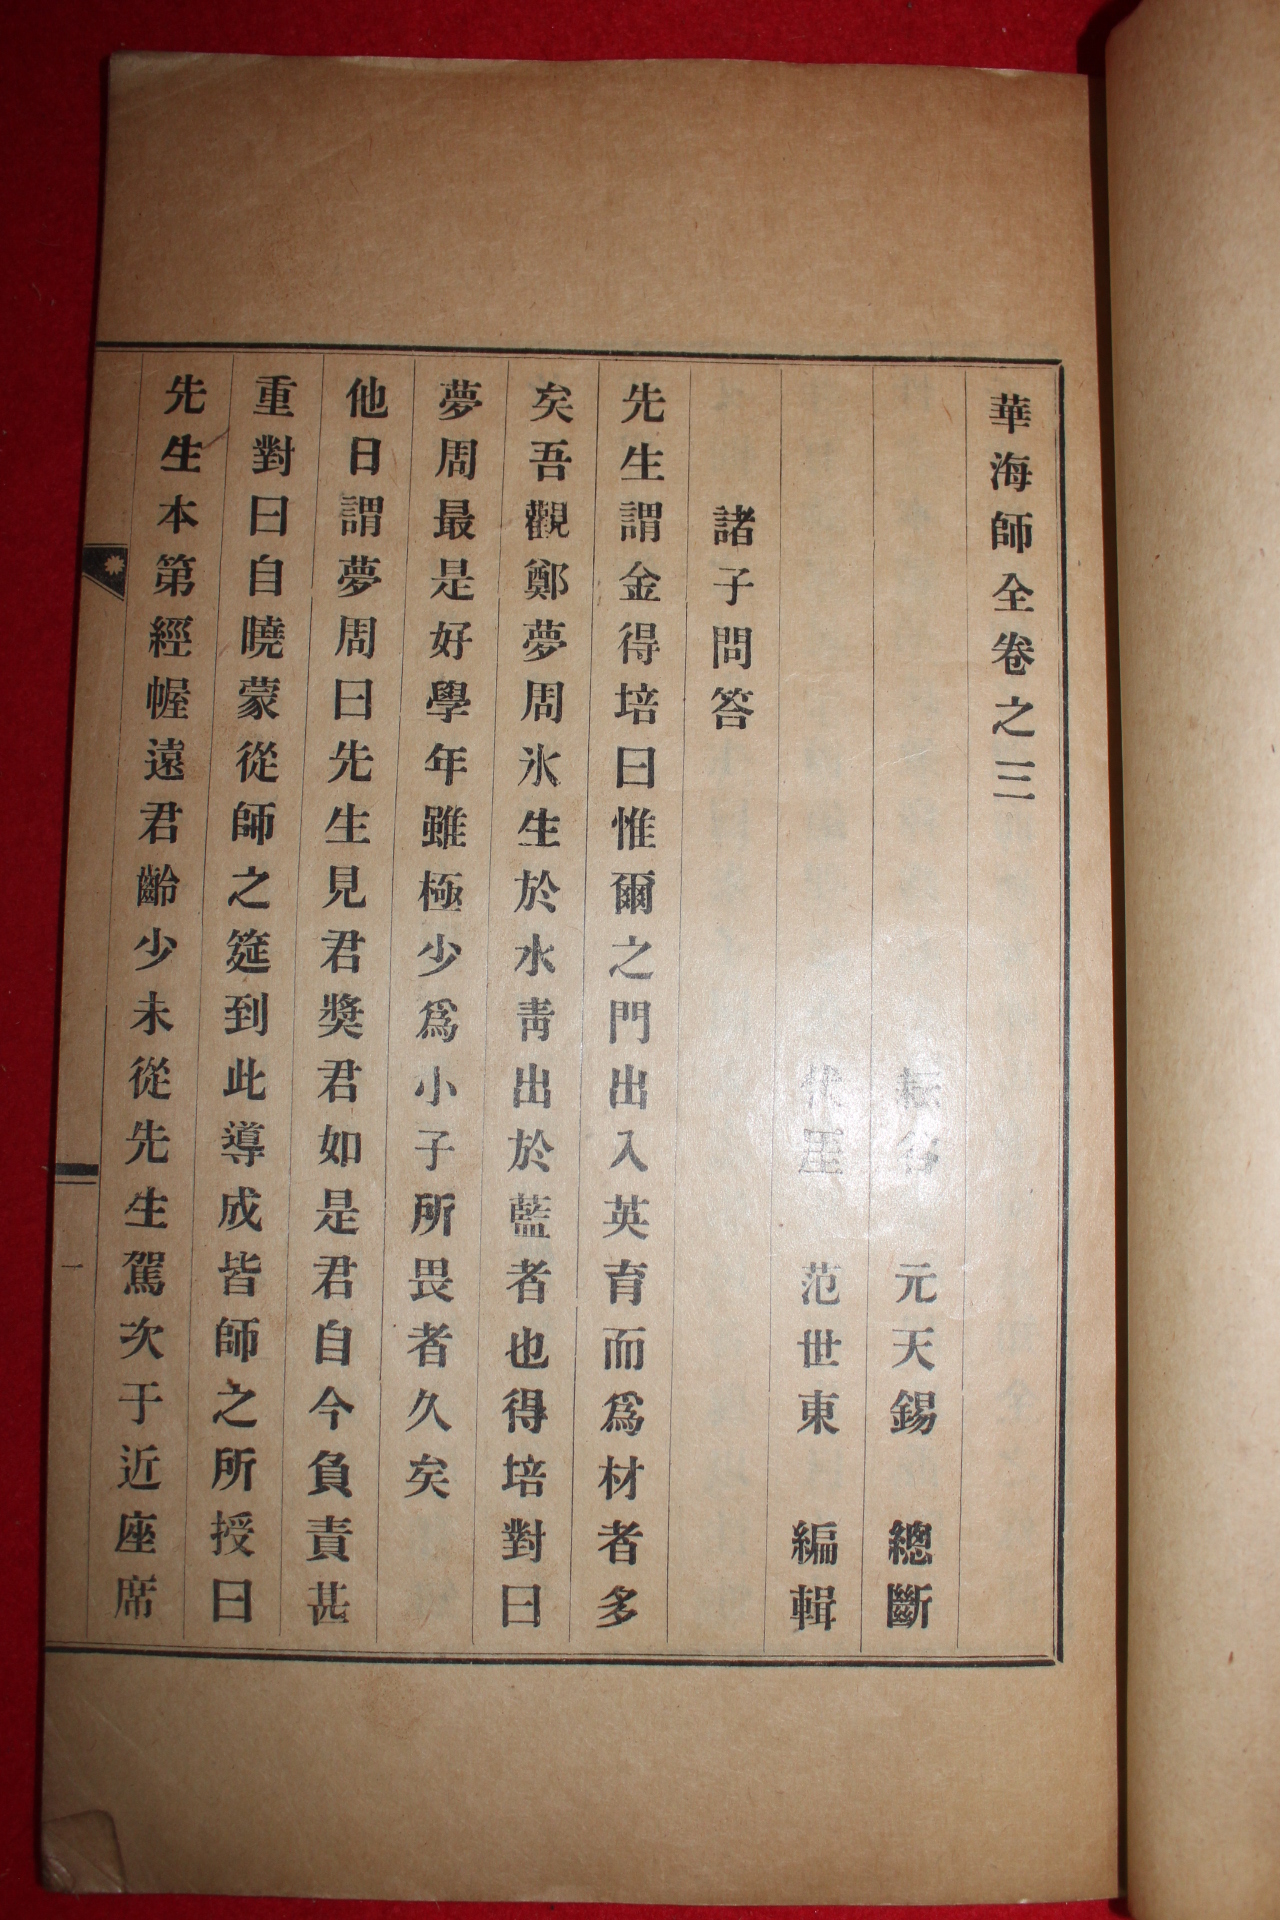 華海師全卷之三
耘谷 元天錫 總斷
伏厓 范世東 編輯
諸子問答
先生謂金得培曰惟爾之門出入英育而爲材者多
矣吾觀鄭夢周氷生於水靑出於藍者也得培對曰
夢周最是好學年雖極少爲小子所畏者久矣
他日謂夢周曰先生見君奬君如是君自今負責甚
重對曰自曉蒙從師之筵到此導成皆師之所授曰
先生本第經幄遠君齡少未從先生駕次于近座席
一